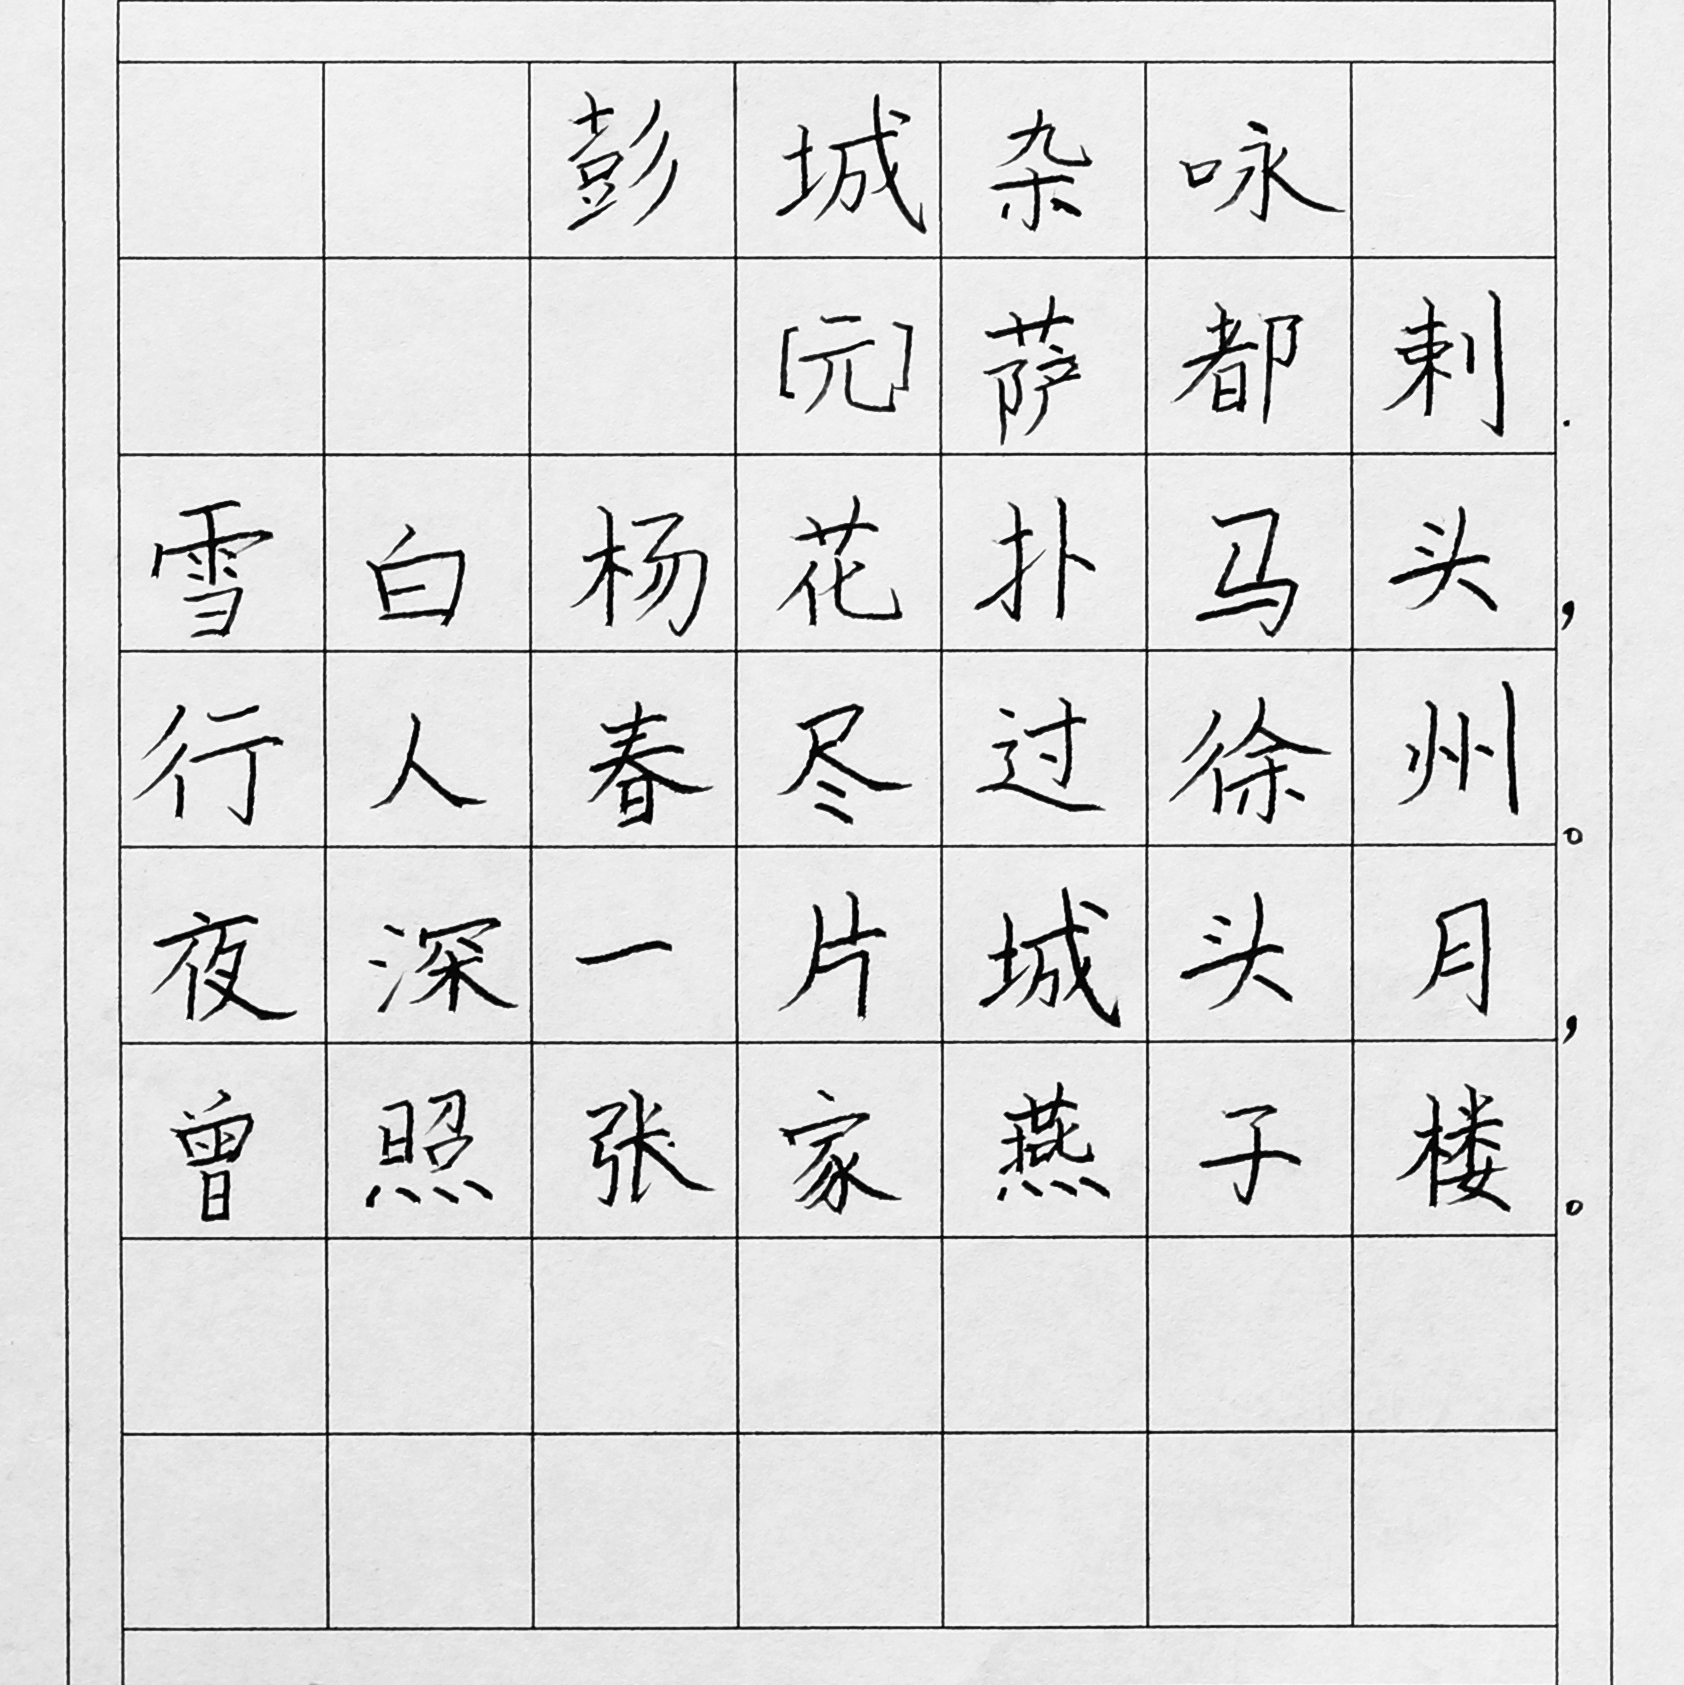 彭城杂咏
[元]萨都剌
雪白杨花扑马头，
行人春尽过徐州。
夜深一片城头月，
曾照张家燕子楼。